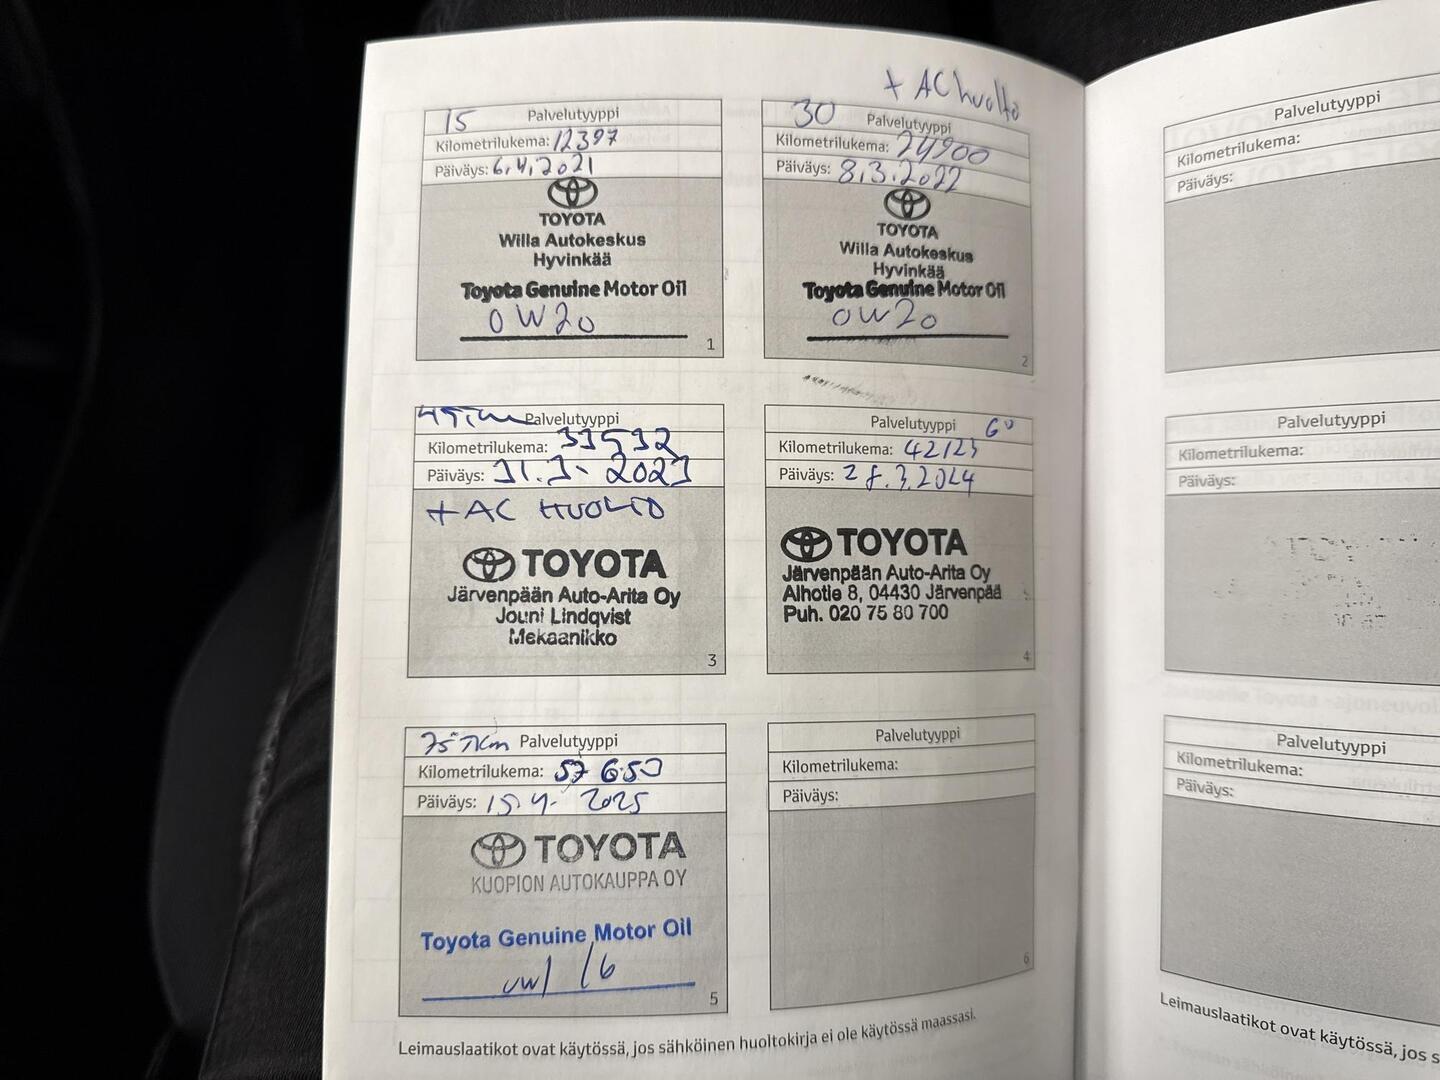 + AC huolto
15 Palvelutyyppi
Kilometrilukema: 12397
Päiväys: 6.4.2021
TOYOTA
Willa Autokeskus
Hyvinkää
Toyota Genuine Motor Oil
0W20
1
30 Palvelutyyppi
Kilometrilukema: 24900
Päiväys: 8.3.2022
TOYOTA
Willa Autokeskus
Hyvinkää
Toyota Genuine Motor Oil
0W20
2
Palvelutyyppi
Kilometrilukema: 33532
Päiväys: 31.3.2023
+ AC HUOLTO
TOYOTA
Järvenpään Auto-Arita Oy
Jouni Lindqvist
Mekaanikko
3
Palvelutyyppi 60
Kilometrilukema: 42123
Päiväys: 28.3.2024
TOYOTA
Järvenpään Auto-Arita Oy
Alhotie 8, 04430 Järvenpää
Puh. 020 75 80 700
4
75 Tkm Palvelutyyppi
Kilometrilukema: 57 650
Päiväys: 15.4. 2025
TOYOTA
KUOPION AUTOKAUPPA OY
Toyota Genuine Motor Oil
5
Palvelutyyppi
Kilometrilukema:
Päiväys:
6
Leimauslaatikot ovat käytössä, jos sähköinen huoltokirja ei ole käytössä maassasi.
Palvelutyyppi
Kilometrilukema:
Päiväys:
Palvelutyyppi
Kilometrilukema:
Päiväys:
Palvelutyyppi
Kilometrilukema:
Päiväys:
Leimauslaatikot ovat käytössä, jos s